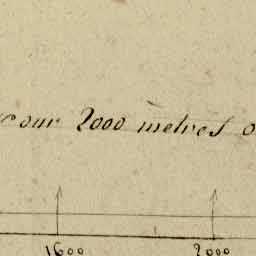 pour 2000 metres
1600 2000